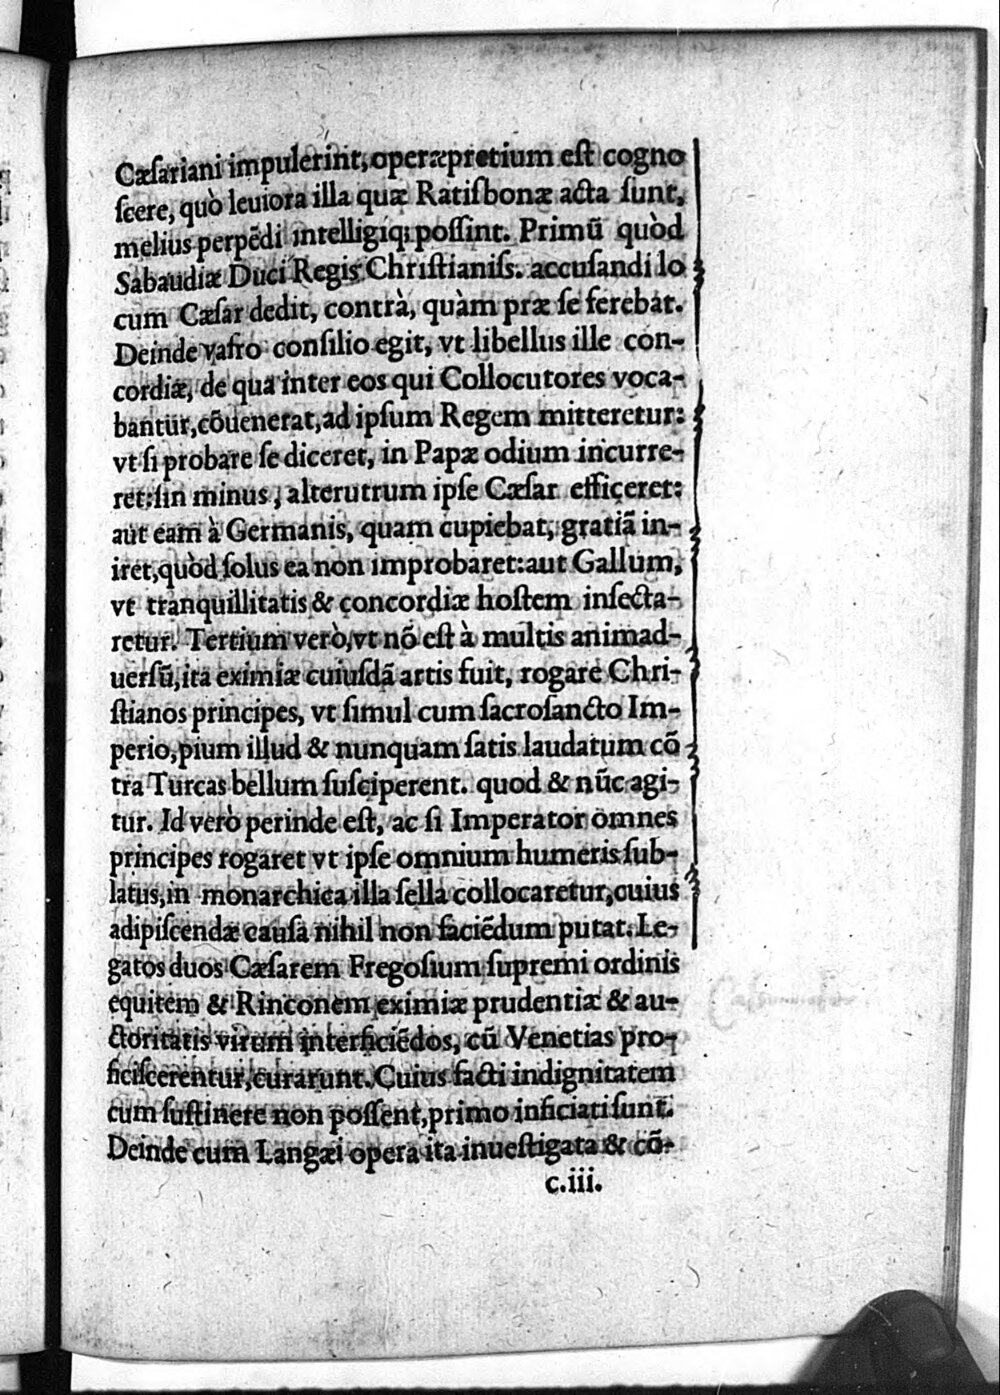 Cæsariani impulerint, operæpretium est cogno
scere, quò leuiora illa quæ Ratisbonæ acta sunt,
melius perpẽdi intelligiq; possint. Primũ quòd
Sabaudiæ Duci Regis Christianiss. accusandi lo
cum Cæsar dedit, contrà, quàm præ se ferebat.
Deinde vafro consilio egit, vt libellus ille con-
cordiæ, de qua inter eos qui Collocutores voca-
bantur, cõuenerat, ad ipsum Regem mitteretur:
vt si probare se diceret, in Papæ odium incurre-
ret: sin minus, alterutrum ipse Cæsar efficeret:
aut eam à Germanis, quam cupiebat, gratiã in-
iret, quòd solus ea non improbaret: aut Gallum,
vt tranquillitatis & concordiæ hostem insecta-
retur. Tertium verò, vt nõ est à multis animad-
uersũ, ita eximiæ cuiusdã artis fuit, rogare Chri-
stianos principes, vt simul cum sacrosancto Im-
perio, pium illud & nunquam satis laudatum cõ
tra Turcas bellum susciperent. quod & nũc agi-
tur. Id verò perinde est, ac si Imperator omnes
principes rogaret vt ipse omnium humeris sub-
latus, in monarchica illa sella collocaretur, cuius
adipiscendæ causa nihil non faciẽdum putat. Le-
gatos duos Cæsarem Fregosium supremi ordinis
equitem & Rinconem eximiæ prudentiæ & au-
ctoritatis virum interficiẽdos, cũ Venetias pro-
ficiscerentur, curarunt. Cuius facti indignitatem
cum sustinere non possent, primo inficiati sunt.
Deinde cum Langæi opera ita inuestigata & cõ-
c.iii.